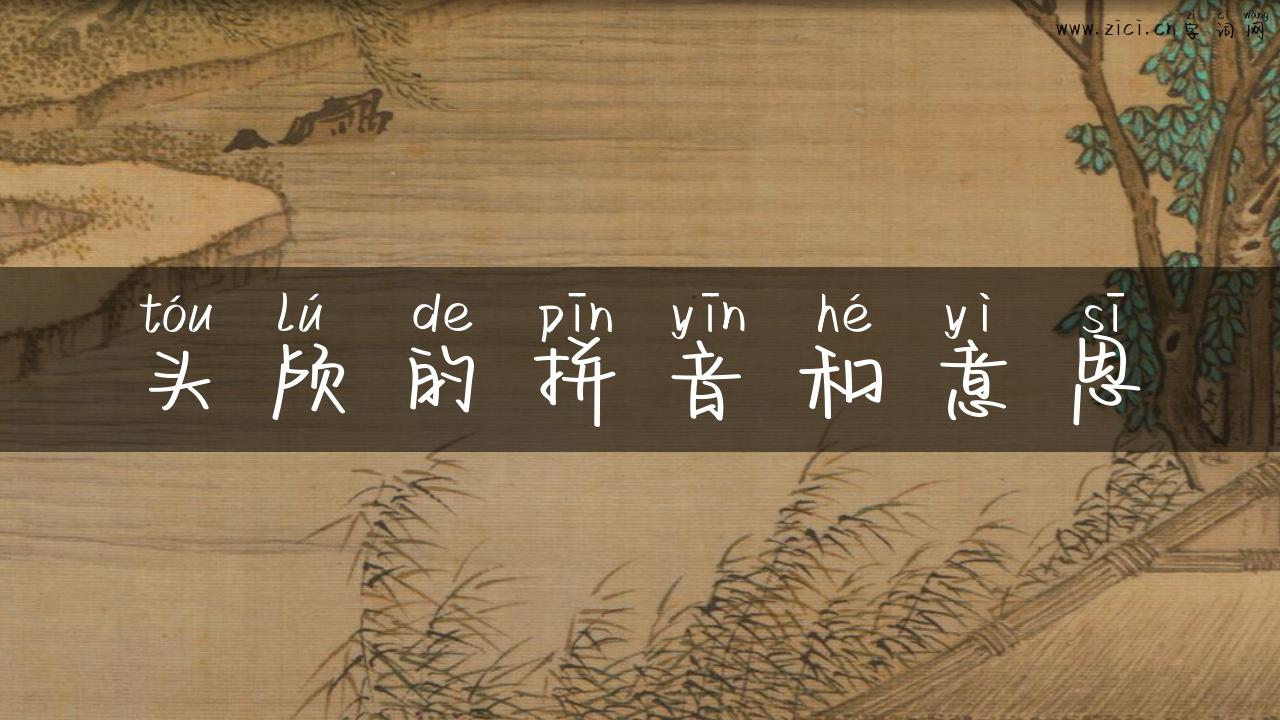 zì cí wǎng
www.zici.cn字词网
tóu lú de pīn yīn hé yì sī
头颅的拼音和意思